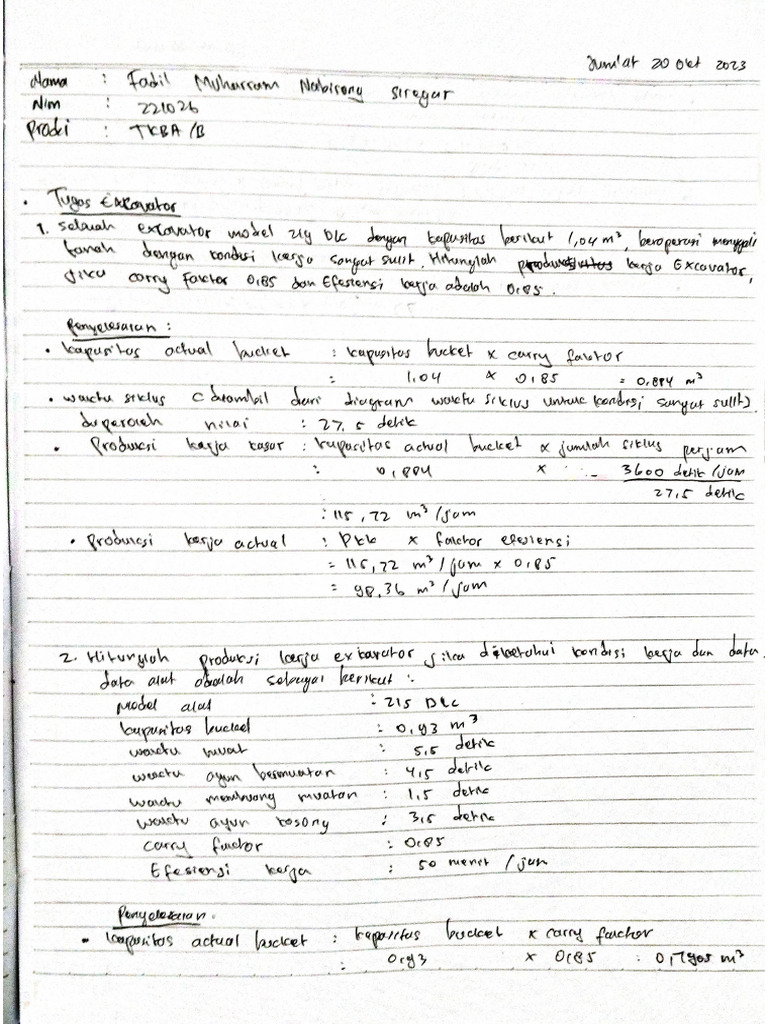 Jum'at 20 Okt 2023
Nama : Fadil Muharram Nabirong Siregar
Nim : 221026
Prodi : TKBA/B
• Tugas Excavator
1. Sebuah excavator model 219 DLC dengan kapasitas berikut 1,04 m³, beroperasi menggali
tanah dengan kondisi kerja sangat sulit. Hitunglah produksi kerja Excavator,
jika carry faktor 0,85 dan Efesiensi kerja adalah 0,85.
Penyelesaian :
• kapasitas actual bucket : kapasitas bucket x carry faktor
: 1,04 x 0,85 = 0,884 m³
• waktu siklus (diambil dari diagram waktu siklus untuk kondisi sangat sulit)
diperoleh nilai : 27,5 detik
• Produksi kerja kasar : kapasitas actual bucket x jumlah siklus perjam
: 0,884 x 3600 detik/jam
27,5 detik
: 115,72 m³/jam
• Produksi kerja actual : Pkk x faktor efesiensi
= 115,72 m³/jam x 0,85
= 98,36 m³/jam
2. Hitunglah produksi kerja exkavator jika diketahui kondisi kerja dan data
data alat adalah sebagai berikut :
Model alat : 215 DLC
kapasitas bucket : 0,93 m³
waktu muat : 5,5 detik
waktu ayun bermuatan : 4,5 detik
waktu membuang muatan : 1,5 detik
waktu ayun kosong : 3,5 detik
carry faktor : 0,85
Efesiensi kerja : 50 menit/jam
Penyelesaian :
• kapasitas actual bucket : kapasitas bucket x carry faktor
: 0,93 x 0,85 : 0,7905 m³